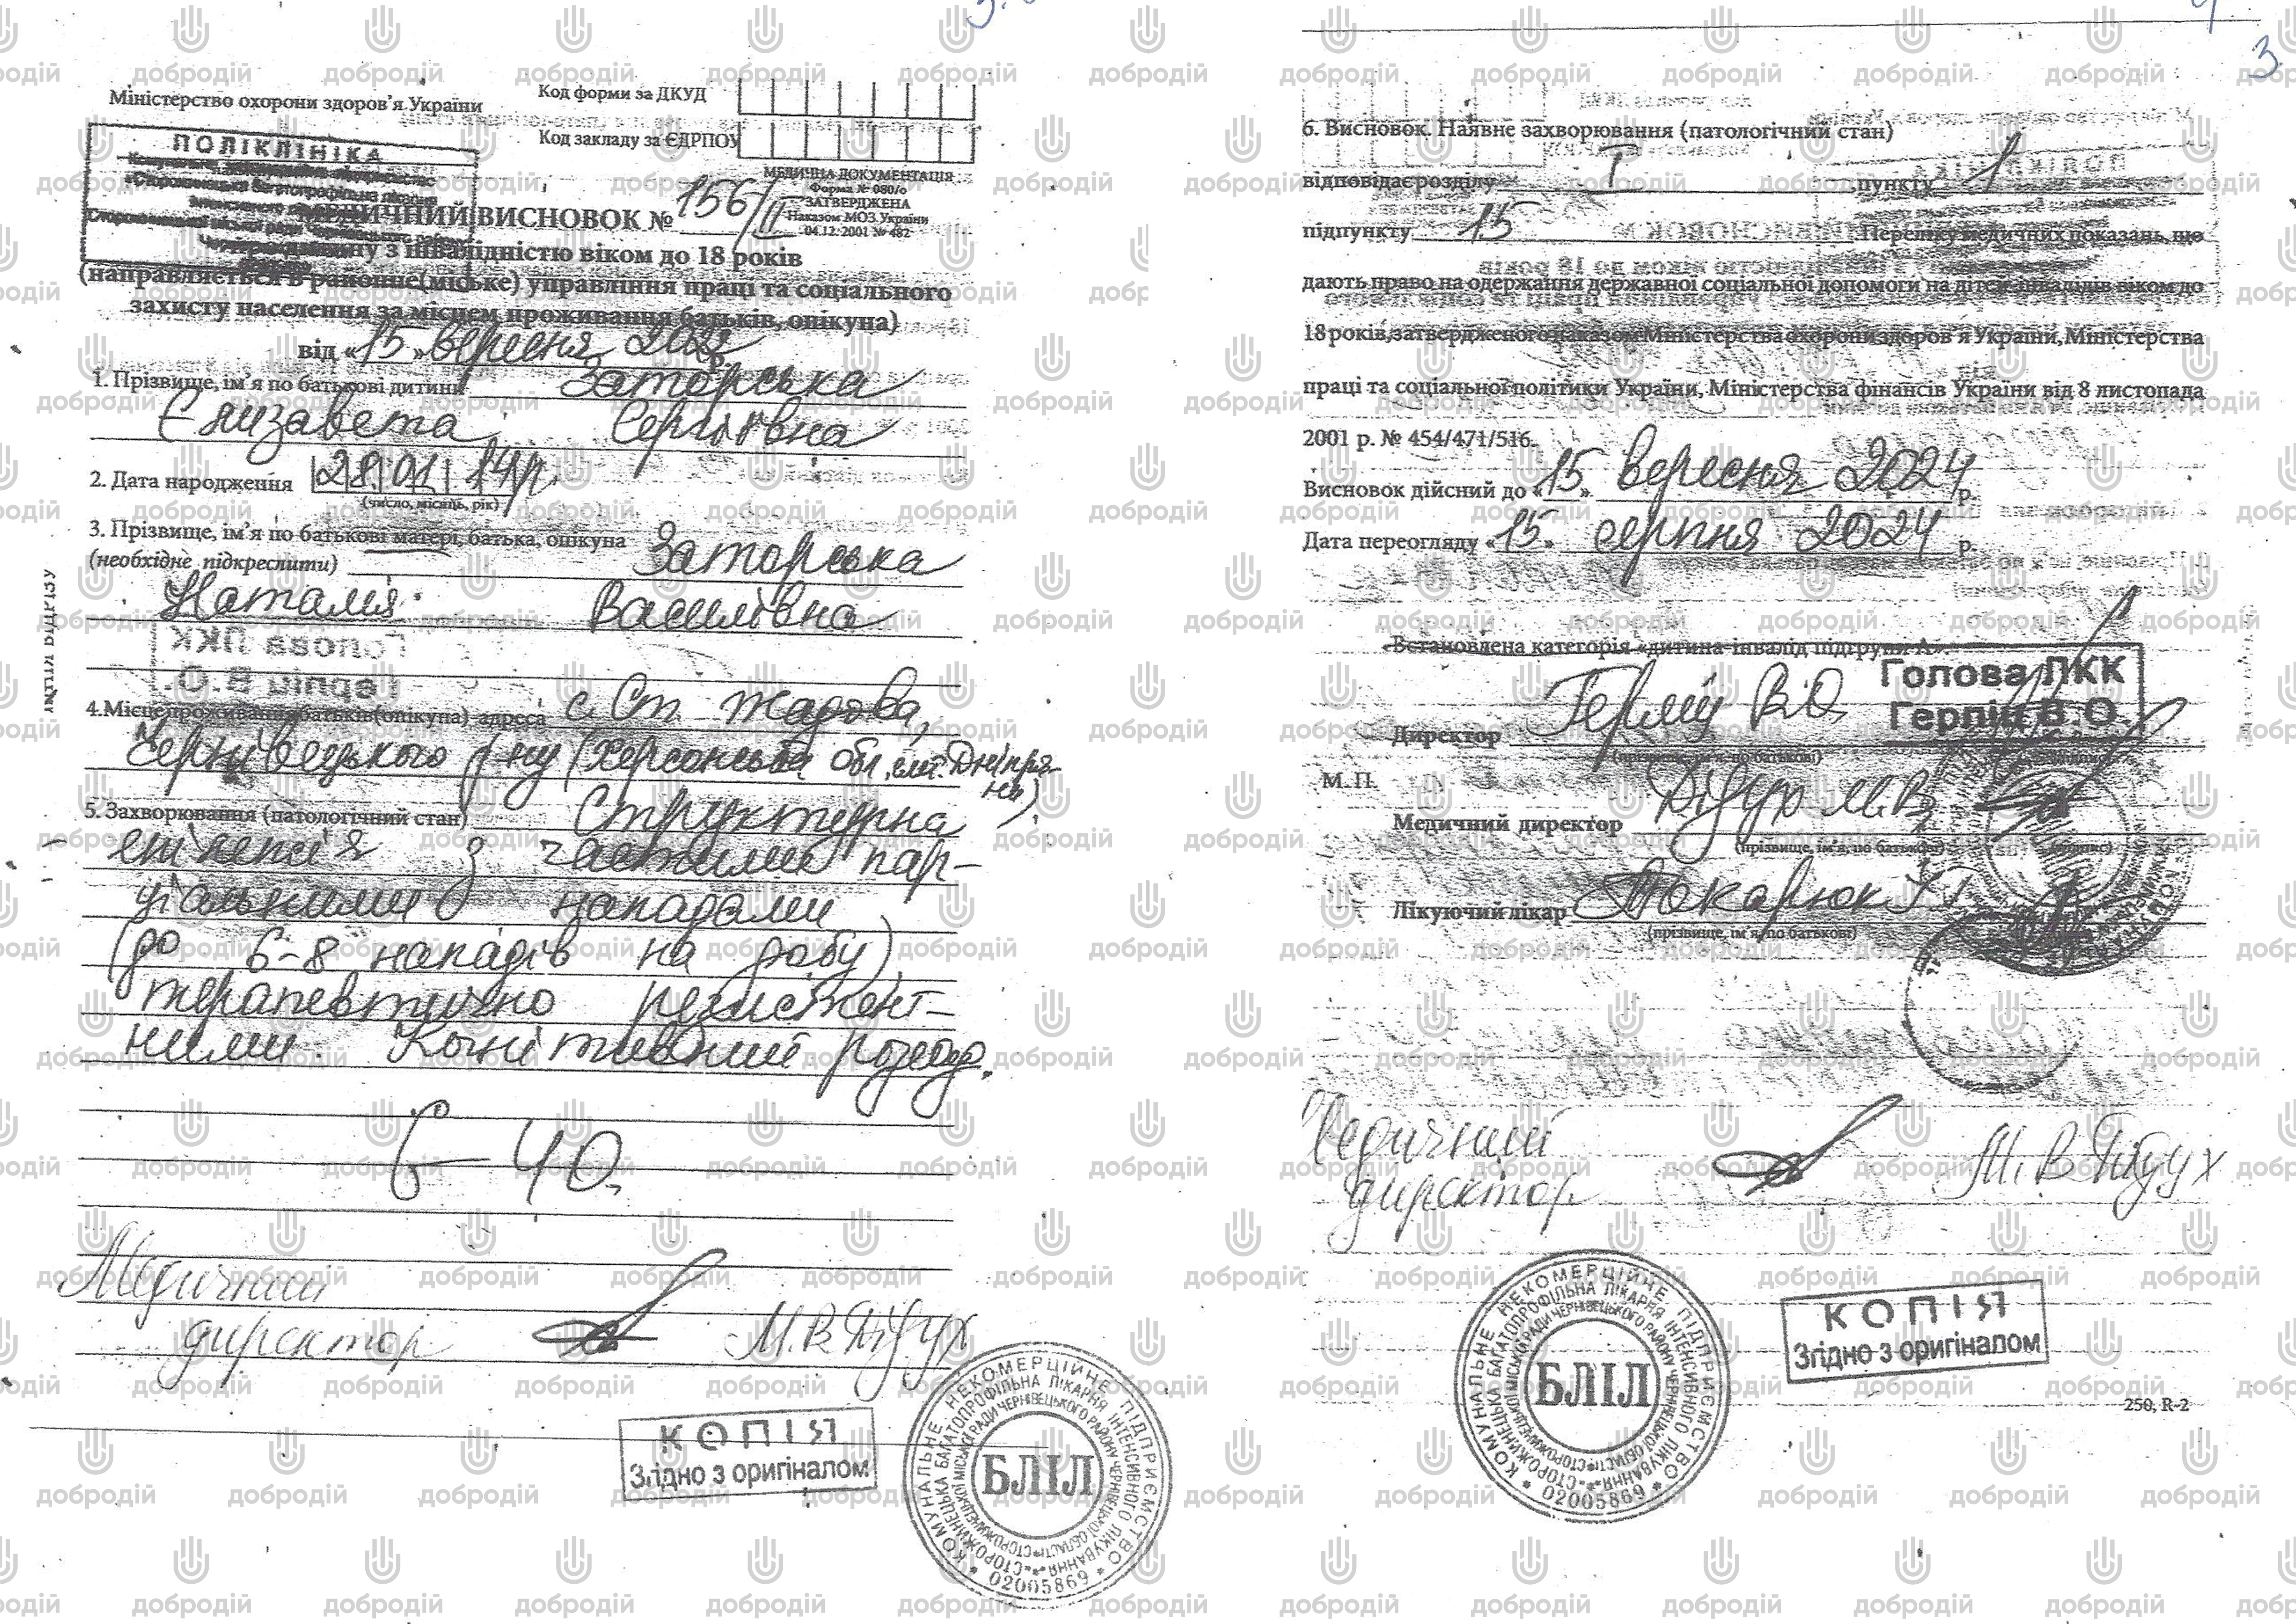 Міністерство охорони здоров'я України
Код форми за ДКУД
Код закладу за ЄДРПОУ
ПОЛІКЛІНІКА
МЕДИЧНА ДОКУМЕНТАЦІЯ
Форма № 080/о
ЗАТВЕРДЖЕНА
Наказом МОЗ України
04.12.2001 № 482
МЕДИЧНИЙ ВИСНОВОК № 156/ІІ
з інвалідністю віком до 18 років
(направляється в районне(міське) управління праці та соціального
захисту населення за місцем проживання батьків, опікуна)
від «15» вересня 2022
1. Прізвище, ім'я по батькові дитини Заторська
Єлизавета Сергіївна
2. Дата народження 28.01.14р
(число, місяць, рік)
3. Прізвище, ім'я по батькові матері, батька, опікуна Заторська
(необхідне підкреслити)
Наталія Василівна
4.Місце проживання батьків(опікуна) адреса с. Ст. Жадова,
Чернівецького р-ну (Херсонська обл, смт. Дніпря-
ни)
5. Захворювання (патологічний стан) Структурна
епілепсія з частими пар-
ціальними нападами
(до 6-8 нападів на добу)
терапевтично резистент-
ними. Когнітивний розлад.
G-40
Медичний
директор М.В. Дідух
КОПІЯ
Згідно з оригіналом
КОМУНАЛЬНЕ НЕКОМЕРЦІЙНЕ ПІДПРИЄМСТВО
СТОРОЖИНЕЦЬКА БАГАТОПРОФІЛЬНА ЛІКАРНЯ ІНТЕНСИВНОГО ЛІКУВАННЯ
СТОРОЖИНЕЦЬКОЇ МІСЬКОЇ РАДИ ЧЕРНІВЕЦЬКОГО РАЙОНУ ЧЕРНІВЕЦЬКОЇ ОБЛАСТІ
БЛІЛ
02005869
3
6. Висновок. Наявне захворювання (патологічний стан)
відповідає розділу І пункту 1
підпункту 15 Переліку медичних показань, що
дають право на одержання державної соціальної допомоги на дітей-інвалідів віком до
18 років, затвердженого наказом Міністерства охорони здоров'я України, Міністерства
праці та соціальної політики України, Міністерства фінансів України від 8 листопада
2001 р. № 454/471/516.
Висновок дійсний до «15» вересня 2024 р.
Дата переогляду «15» серпня 2024 р.
Встановлена категорія «дитина-інвалід підгрупи А».
Голова ЛКК
Герпіц В.О.
Директор В.О.
(прізвище, ім'я, по батькові)
М. П.
Медичний директор Дідух М.В.
(прізвище, ім'я, по батькові) (підпис)
Лікуючий лікар Токарюк
(прізвище, ім'я, по батькові)
Медичний
директор М.В. Дідух
КОМУНАЛЬНЕ НЕКОМЕРЦІЙНЕ ПІДПРИЄМСТВО
СТОРОЖИНЕЦЬКА БАГАТОПРОФІЛЬНА ЛІКАРНЯ ІНТЕНСИВНОГО ЛІКУВАННЯ
СТОРОЖИНЕЦЬКОЇ МІСЬКОЇ РАДИ ЧЕРНІВЕЦЬКОГО РАЙОНУ ЧЕРНІВЕЦЬКОЇ ОБЛАСТІ
БЛІЛ
02005869
КОПІЯ
Згідно з оригіналом
250, R-2
добродій